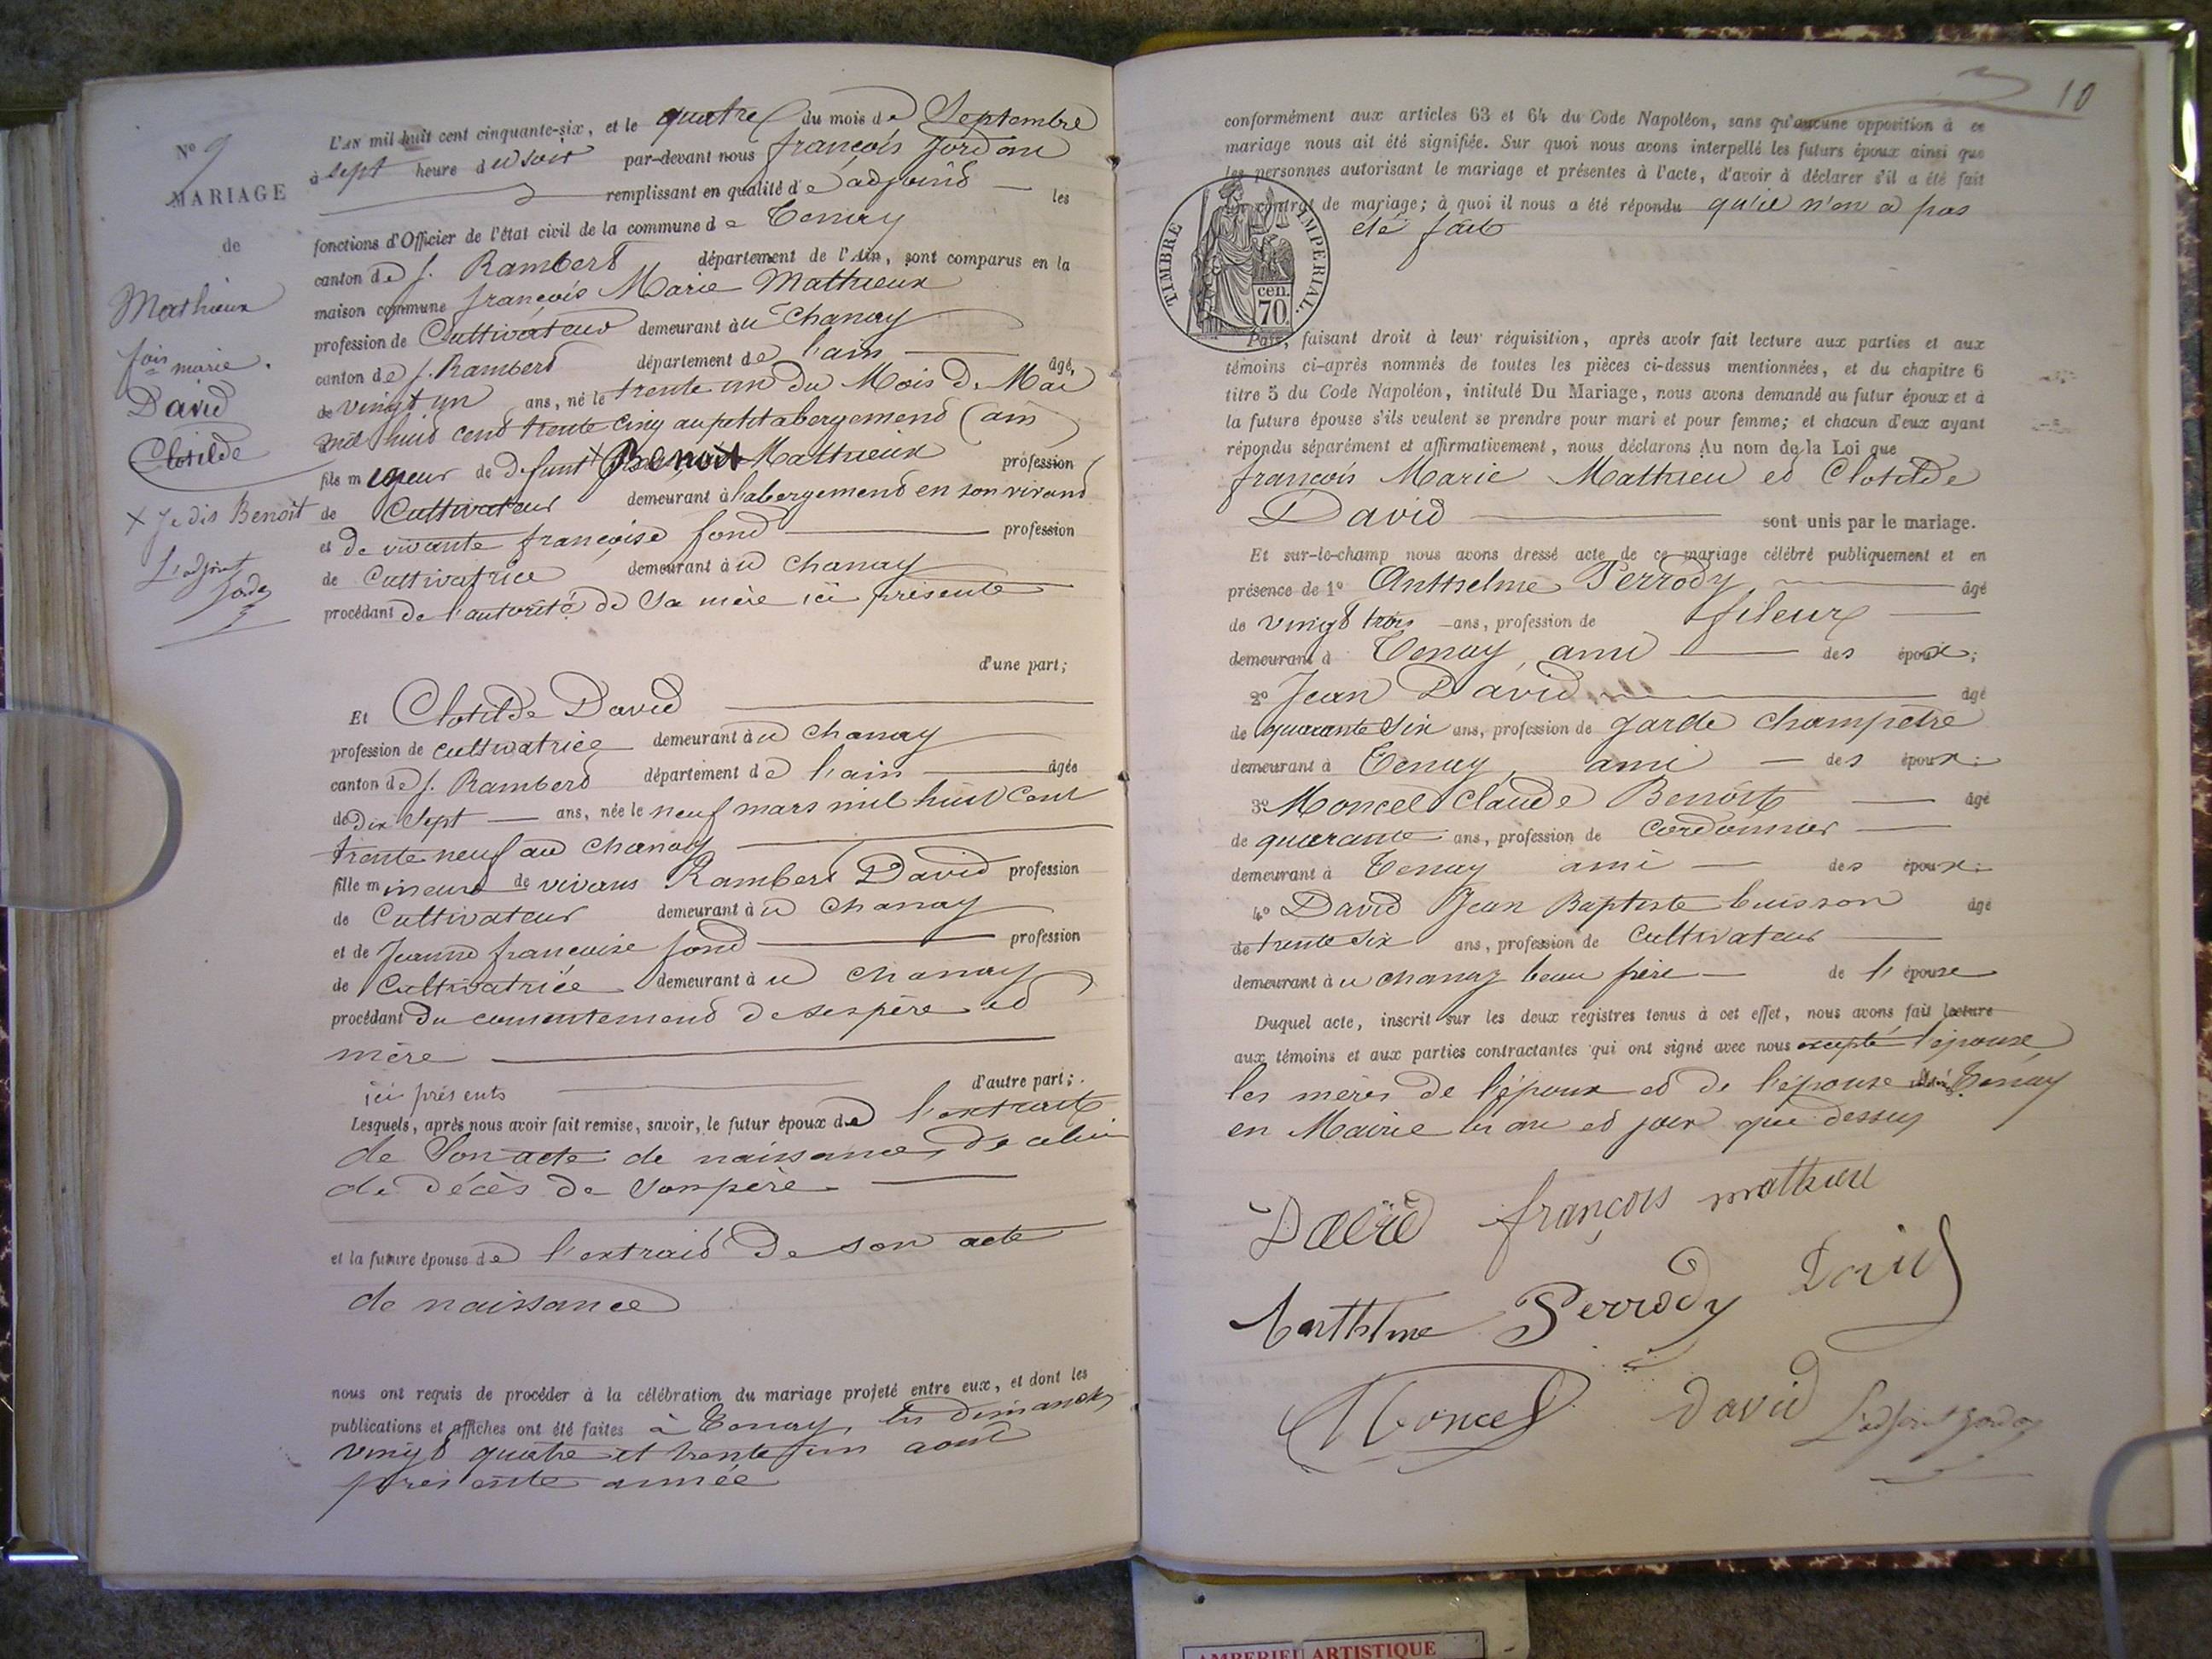 N° 9
MARIAGE
de
Mathieux
fois marie.
David
Clotilde
+ Je dis Benoît
L'adjoint
L'AN mil huit cent cinquante-six, et le quatre du mois de Septembre
à sept heure du soir par-devant nous françois Jordan
remplissant en qualité de adjoint les
fonctions d'Officier de l'état civil de la commune de Tenay
canton de S. Rambert département de l'Ain, sont comparus en la
maison commune françois Marie Mathieux
profession de Cultivateur demeurant àu Chanay
canton de S. Rambert département de l'ain âgé
de vingt un ans, né le trente un du Mois de Mai
mil huit cent trente cinq au petit abergement (ain)
fils mineur de defunt + Benoit Mathieux profession
de Cultivateur demeurant à l'abergement en son vivant
et de vivante françoise fond profession
de Cultivatrice demeurant àu Chanay
procédant de l'autorité de Sa mère ici présente
d'une part;
Et Clotilde David
profession de cultivatrice demeurant àu Chanay
canton de S. Rambert département de l'ain âgée
de Dix Sept ans, née le neuf mars mil huit cent
trente neuf au Chanay
fille mineure de vivans Rambert David profession
de Cultivateur demeurant àu Chanay
et de Jeanne francoise fond profession
de Cultivatrice demeurant àu Chanay
procédant du consentement de ses père et
mère
ici présents d'autre part;
Lesquels, après nous avoir fait remise, savoir, le futur époux de l'extrait
de Son acte de naissance, de celui
de décès de Son père
et la future épouse de l'extrait de son acte
de naissance
nous ont requis de procéder à la célébration du mariage projeté entre eux, et dont les
publications et affiches ont été faites à Tenay, les dimanches
vingt quatre et trente un août
présente année
10
conformément aux articles 63 et 64 du Code Napoléon, sans qu'aucune opposition à ce
mariage nous ait été signifiée. Sur quoi nous avons interpellé les futurs époux ainsi que
les personnes autorisant le mariage et présentes à l'acte, d'avoir à déclarer s'il a été fait
contrat de mariage; à quoi il nous a été répondu qu'il n'en a pas
été fait
TIMBRE IMPERIAL.
70 cen.
Puis, faisant droit à leur réquisition, après avoir fait lecture aux parties et aux
témoins ci-après nommés de toutes les pièces ci-dessus mentionnées, et du chapitre 6
titre 5 du Code Napoléon, intitulé Du Mariage, nous avons demandé au futur époux et à
la future épouse s'ils veulent se prendre pour mari et pour femme; et chacun d'eux ayant
répondu séparément et affirmativement, nous déclarons Au nom de la Loi que
françois Marie Mathieu et Clotilde
David sont unis par le mariage.
Et sur-le-champ nous avons dressé acte de ce mariage célébré publiquement et en
présence de 1° Anthelme Perrody âgé
de vingt trois ans, profession de fileur
demeurant à Tenay, ami des époux;
2° Jean David âgé
de quarante Six ans, profession de garde champetre
demeurant à Tenay, ami des époux;
3° Moncel Claude Benoît âgé
de quarante ans, profession de Cordonnier
demeurant à Tenay ami des époux;
4° David Jean Baptiste buisson âgé
de trente Six ans, profession de Cultivateur
demeurant àu chanay beau frère de l'épouse
Duquel acte, inscrit sur les deux registres tenus à cet effet, nous avons fait lecture
aux témoins et aux parties contractantes qui ont signé avec nous excepté l'épouse
les mères de l'époux et de l'épouse Tenay
en Mairie les an et jour que dessus
David françois mathieu
Perrody David
Moncel David L'adjoint Jordan
AMBERIEU ARTISTIQUE